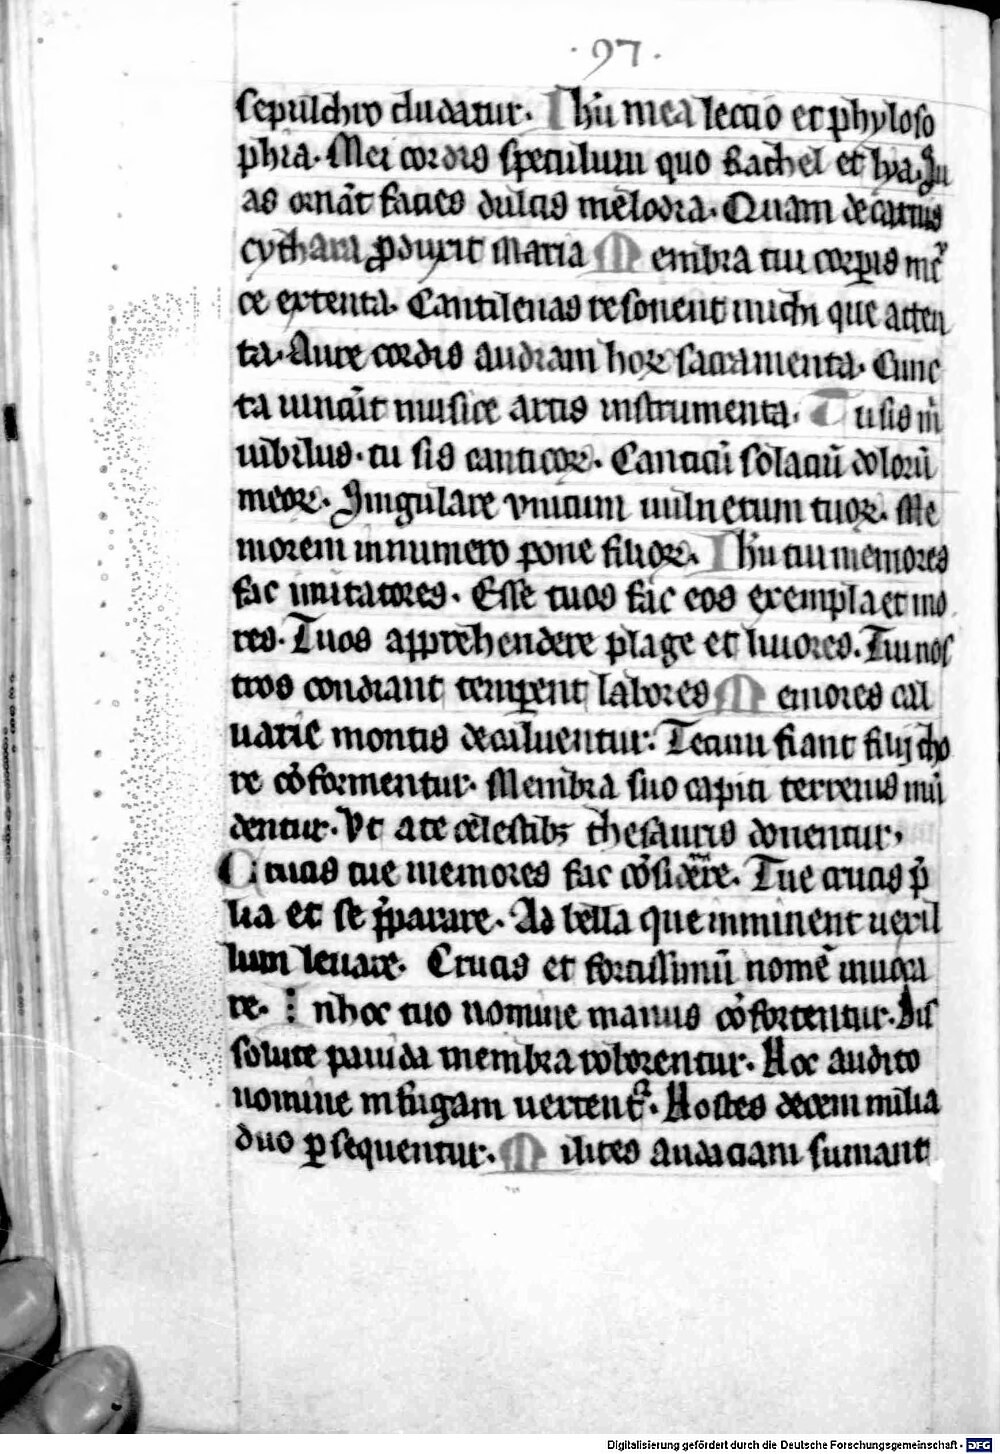 · 97 ·
sepulchro cludatur. Ihū mea lectio et phyloso
phia. Mei cordis speculum quo Rachel et lya. Su
as ornāt facies dulcis melodia. Quam de carnis
cythara ꝓduxit Maria Membra tui corꝑis
ce extenta. Cantilenas resonent michi que atten
ta. Aure cordis audiam hoꝝ sacramenta. Cunc
ta uincūt musice artis instrumenta. Tu sis m̄
iubilus. tu sis canticoꝝ. Canticū solaciū dolorū
meoꝝ. Singulare vnicum uulnerum tuoꝝ. Me
morem in numero pone filioꝝ. Ihū tui memores
fac imitatores. Esse tuos fac eos exempla et mo
res. Tuos apprehendere plage et liuores. Tui nos
tros condiant temꝑent labores Memores cal
uarie montis decaluentur. Tecum fiant filij cho
re cōformentur. Membra suo capiti terrenis mū
dentur. Vt a te celestibꝫ thesauris donentur.
Crucis tue memores fac cōsid̄are. Tue crucis p̄
lia et se p̄parare. Ad bella que imminent uexil
lum leuare. Crucis et fortissimū nomē inuoca
re. In hoc tuo nomine manus cōfortentur. Dis
solute pauida membra roborentur. Hoc audito
nomine in fugam uertent᷑. Hostes decem milia
duo ꝑsequentur. Milites audaciam sumant
Digitalisierung gefördert durch die Deutsche Forschungsgemeinschaft - DFG